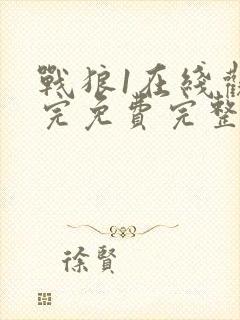 戰狼1在綫觀
完免費完整
徐賢